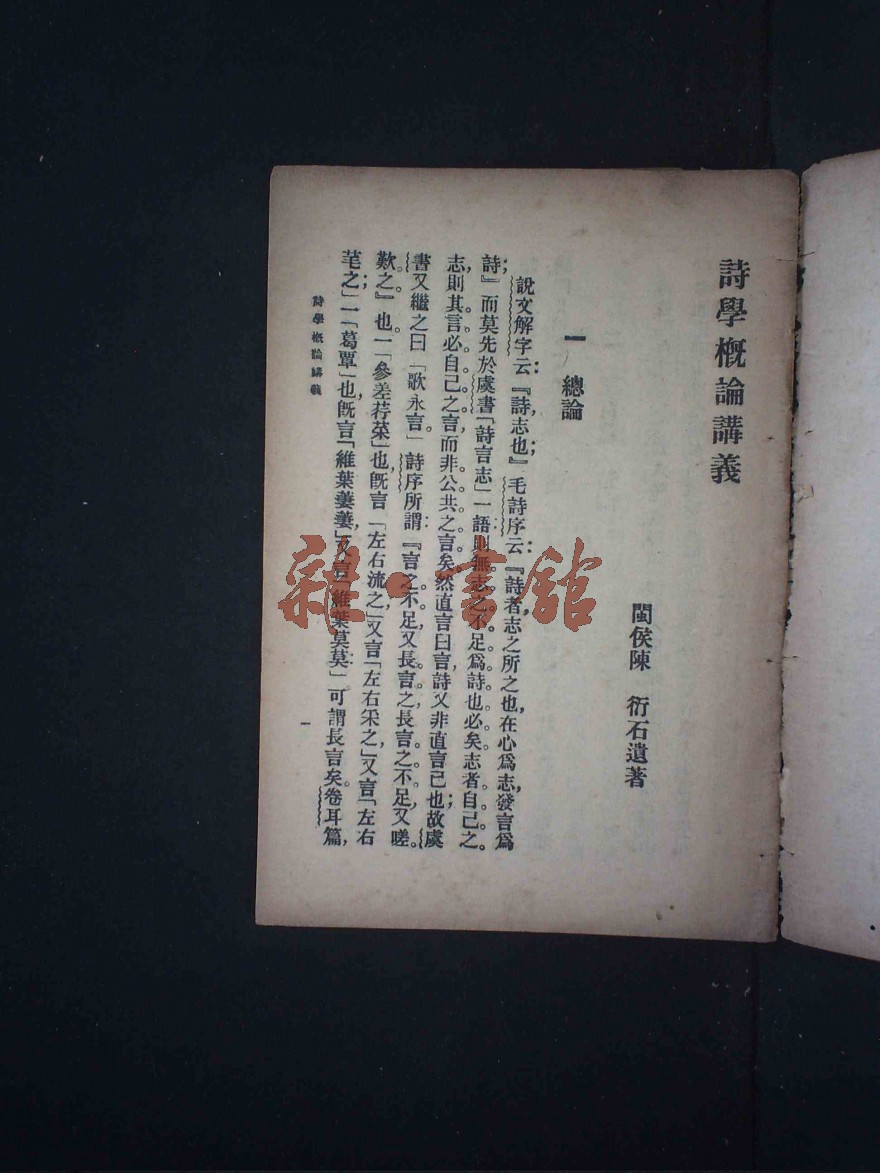 詩學概論講義
閩侯陳 衍石遺著
一 總論
說文解字云:『詩,志也』;毛詩序云:『詩者志之所之也,在心爲志,發言爲
詩;』而莫先於虞書「詩言志」一語:則無志之不足爲詩也必矣。志者自己之
志,則其言必自己之言,而非公共之言矣。然直言曰言,詩又非直言已也;故虞
書又繼之曰「歌永言。」詩序所謂:『言之不足,又長言之,長言之不足,又嗟
歎之。』也。一「參差荇菜」也,旣言「左右流之,」又言「左右采之,」又言「左右
芼之;」一「葛覃」也,旣言「維葉萋萋,」又言「維葉莫莫:」可謂長言矣。卷耳篇,
詩學概論講義
一
雜·書館